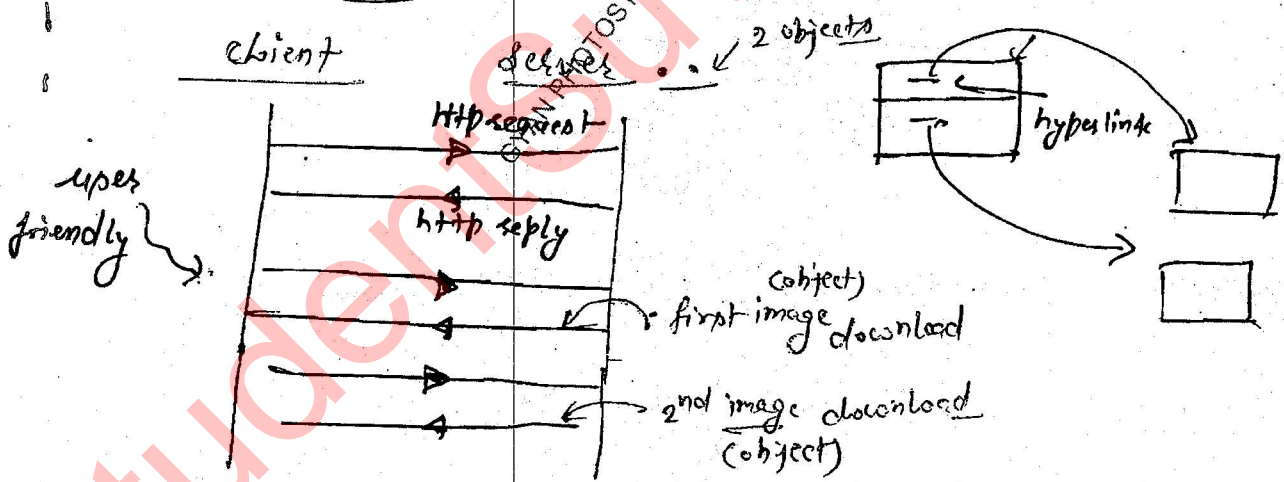 client
server
2 objects
Http request
http reply
user
friendly
hyperlink
(object)
first image download
2nd image download
(object)